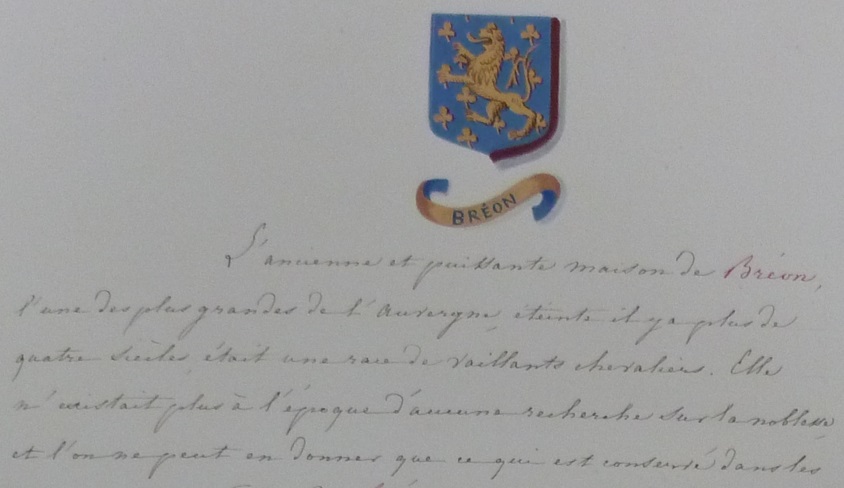 BRÉON
L'ancienne et puissante maison de Bréon,
l'une des plus grandes de l'Auvergne, éteinte il y a plus de
quatre siècles, était une race de vaillants chevaliers. Elle
n'existait plus à l'époque d'aucune recherche sur la noblesse,
et l'on ne peut en donner que ce qui est conservé dans les